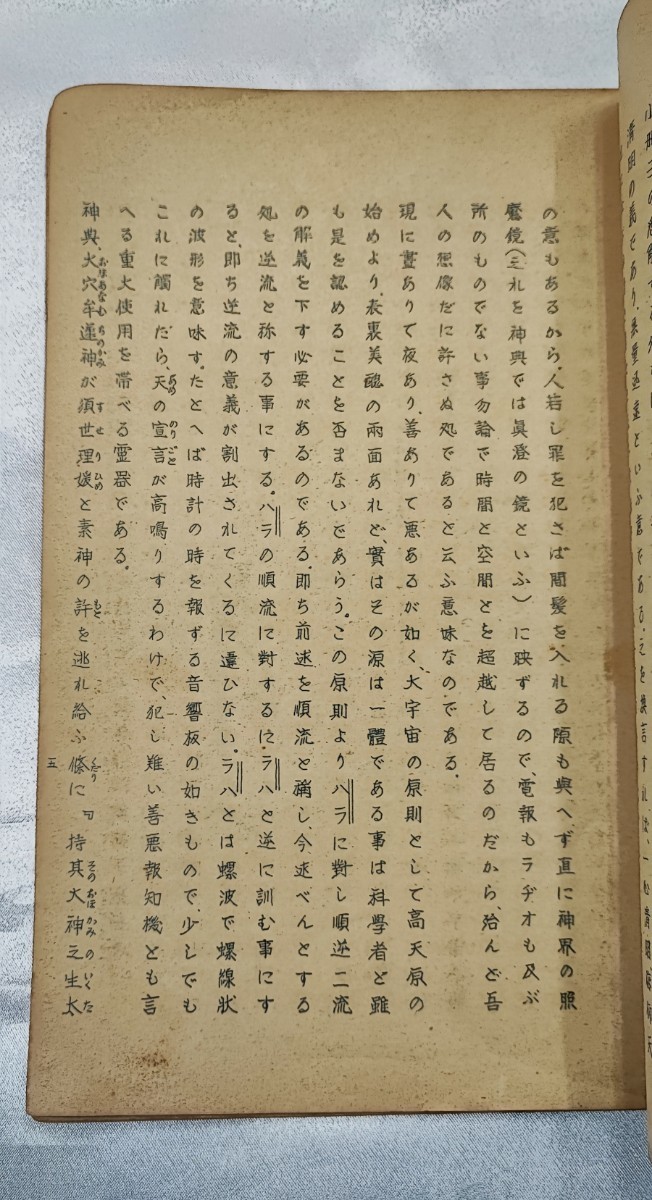 の意もあるから、人若し罪を犯さば間髪を入れる隙も與へず直に神界の照
魔鏡(之れを神典では眞澄の鏡といふ)に映ずるので、電報もラヂオも及ぶ
所のものでない事勿論で時間と空間とを超越して居るのだから、殆んど吾
人の想像だに許さぬ処であると云ふ意味なのである。
現に晝ありて夜あり、善ありて悪あるが如く、大宇宙の原則として高天原の
始めより、表裏美醜の兩面あれど、實はその源は一體である事は科學者と雖
も是を認めることを否まないであらう。この原則よりハラに對し順逆二流
の解義を下す必要があるのである。即ち前述を順流と稱し、今述べんとする
処を逆流と称する事にする。ハラの順流に對するにラハと逆に訓む事にす
ると、即ち逆流の意義が割出されてくるに違ひない。ラハとは螺波で螺線狀
の波形を意味す。たとへば時計の時を報ずる音響板の如きもので、少しでも
これに觸れだら、天の宣言が高鳴りするわけで、犯し難い善悪報知機とも言
あめ のりごと
へる重大使用を帯べる霊器である。
神典、大穴牟遲神が須世理媛と素神の許を逃れ給ふ條に『持其大神之生太
おほあなむちのかみ すせりひめ もと くだり そのおほかみのいくた
五